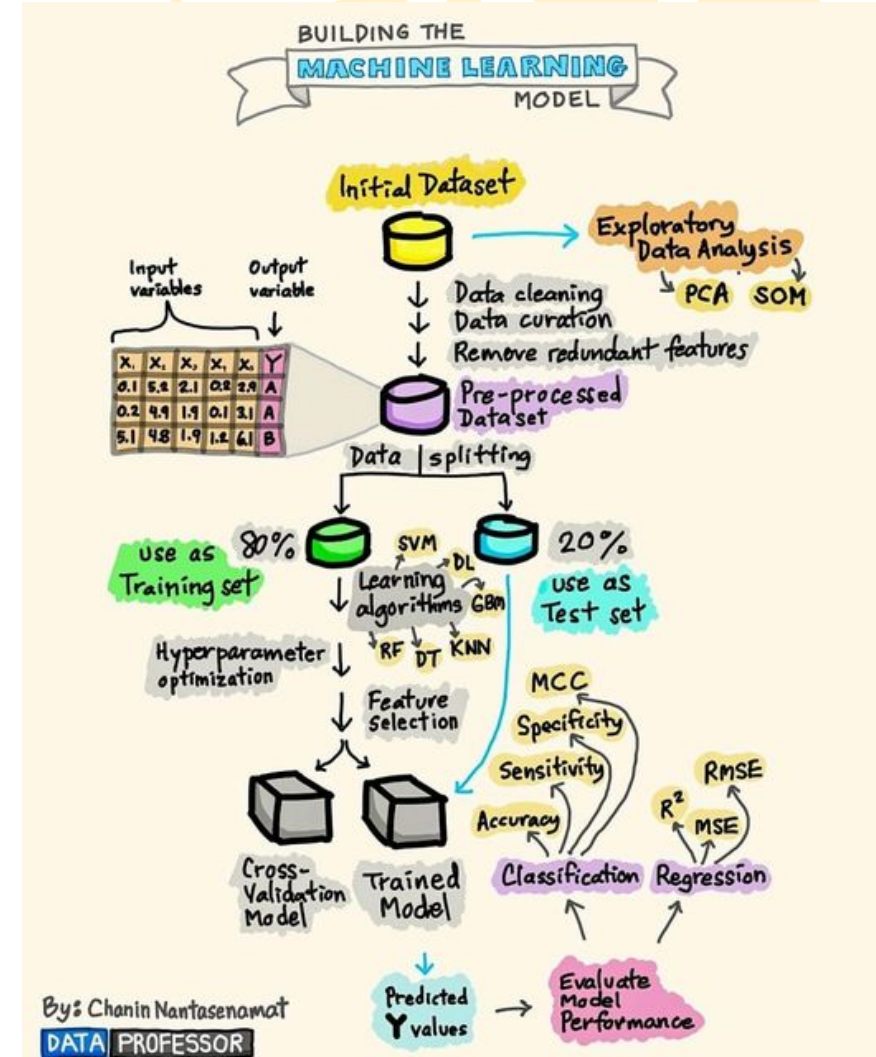 BUILDING THE
MACHINE LEARNING
MODEL
Initial Dataset
Exploratory
Data Analysis
PCA SOM
Input
variables
Output
variable
Data cleaning
Data curation
Remove redundant features
X₁ X₂ X₃ X₄ X₅ Y
0.1 5.2 2.1 0.2 2.9 A
0.2 4.9 1.9 0.1 3.1 A
5.1 4.8 1.9 1.2 6.1 B
Pre-processed
Dataset
Data splitting
80%
20%
use as
Training set
use as
Test set
Learning
algorithms
SVM
DL
GBM
KNN
DT
RF
Hyperparameter
optimization
Feature
selection
MCC
Specificity
Sensitivity
Accuracy
RMSE
R²
MSE
Classification Regression
Cross-
Validation
Model
Trained
Model
Predicted
Y values
Evaluate
Model
Performance
By: Chanin Nantasenamat
DATA PROFESSOR